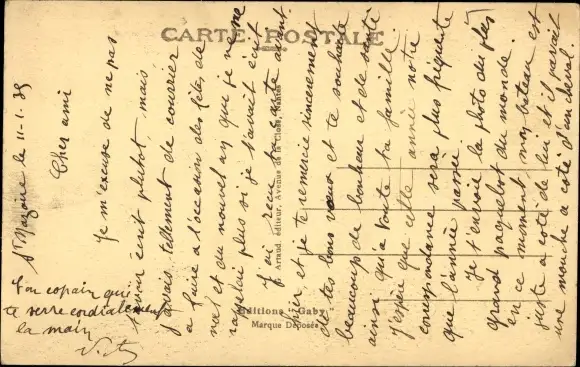 CARTE POSTALE
F. Artaud, éditeur, Avenue de la Close, Nantes
Editions "Gaby"
Marque Déposée
St Nazaire le 11-1-39
Cher ami
Je m'excuse de ne pas
t'avoir écrit plutot, mais
j'avais tellement de courrier
a faire a l'ocasion des fêtes de
noel et du nouvel an que je ne me
rappelai plus si je t'avait écrit.
J'ai reçu ta carte avant
hier et je te remercie sincerement
de tes bons vœux et te souhaite
beaucoup de bonheur et de santé
ainsi qu'a toute ta famille.
J'espère que cette année notre
correspondance sera plus fréquente
que l'année passée.
Je t'envoie la photo du plus
grand paquebot du monde.
en ce moment, mon bateau est
juste a coté de lui et il parait
une mouche a coté d'un cheval.
Ton copain qui
te serre cordialement
la main